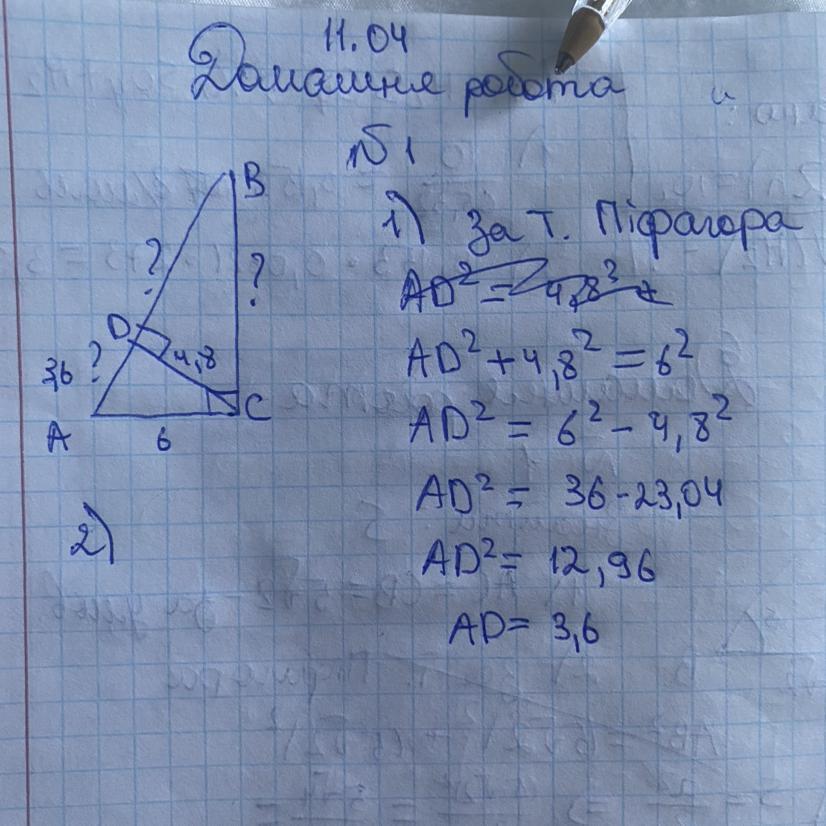 11.04
Домашня робота
№1
B
?
?
D
4,8
3,6 ?
A
6
C
1) За т. Піфагора
AD² = 4,8² +
AD² + 4,8² = 6²
AD² = 6² - 4,8²
AD² = 36 - 23,04
AD² = 12,96
AD = 3,6
2)